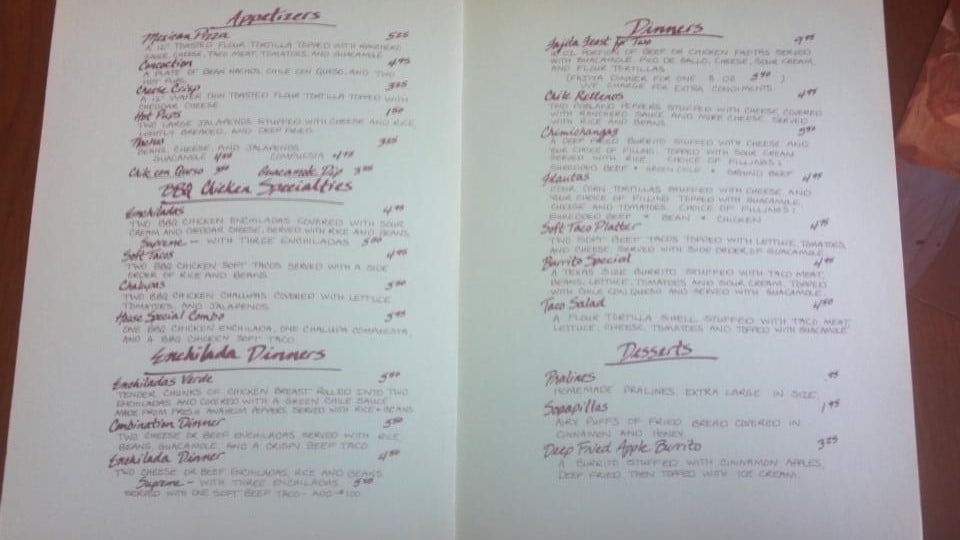 Appetizers
Mexican Pizza 5.25
A 12" TOASTED FLOUR TORTILLA TOPPED WITH RANCHERO
SAUCE, CHEESE, TACO MEAT, TOMATOES, AND GUACAMOLE
Concoction 4.95
A PLATE OF BEAN NACHOS, CHILE CON QUESO, AND TWO
HOT PUPS.
Cheese Crisp 3.25
A 12" WAFER THIN TOASTED FLOUR TORTILLA TOPPED WITH
CHEDDAR CHEESE.
Hot Pups 1.50
TWO LARGE JALAPENOS STUFFED WITH CHEESE AND RICE,
LIGHTLY BREADED, AND DEEP FRIED.
Nachos 3.25
BEANS, CHEESE, AND JALAPENOS.
GUACAMOLE COMPUESTA 4.95
Chile con Queso Guacamole Dip
BBQ Chicken Specialties
Enchiladas 4.95
TWO BBQ CHICKEN ENCHILADAS COVERED WITH SOUR
CREAM AND CHEDDAR CHEESE, SERVED WITH RICE AND BEANS.
Supreme - WITH THREE ENCHILADAS
Soft Tacos 4.95
TWO BBQ CHICKEN SOFT TACOS SERVED WITH A SIDE
ORDER OF RICE AND BEANS.
Chalupas
TWO BBQ CHICKEN CHALUPAS COVERED WITH LETTUCE
TOMATOES, AND JALAPENOS.
House Special Combo 5.95
ONE BBQ CHICKEN ENCHILADA, ONE CHALUPA COMPUESTA,
AND A BBQ CHICKEN SOFT TACO
Enchilada Dinners
Enchiladas Verde 5.50
TENDER CHUNKS OF CHICKEN BREAST ROLLED INTO TWO
ENCHILADAS AND COVERED WITH A GREEN CHILE SAUCE
MADE FROM FRESH ANAHEIM PEPPERS. SERVED WITH RICE + BEANS.
Combination Dinner 5.50
TWO CHEESE OR BEEF ENCHILADAS SERVED WITH RICE,
BEANS, GUACAMOLE, AND A CRISPY BEEF TACO
Enchilada Dinner 4.50
TWO CHEESE OR BEEF ENCHILADAS, RICE AND BEANS
Supreme - WITH THREE ENCHILADAS 5.50
SERVED WITH ONE SOFT BEEF TACO - ADD $1.00
Dinners
Fajita Feast for Two 9.95
OZ PORTION OF BEEF OR CHICKEN FAJITAS SERVED
WITH GUACAMOLE, PICO DE GALLO, CHEESE, SOUR CREAM,
AND FLOUR TORTILLAS.
(FAJITA DINNER FOR ONE 8 OZ )
WE CHARGE FOR EXTRA CONDIMENTS.
Chile Rellenos 4.95
TWO POBLANO PEPPERS STUFFED WITH CHEESE, COVERED
WITH RANCHERO SAUCE AND MORE CHEESE. SERVED
WITH RICE AND BEANS.
Chimichangas 5.50
A DEEP FRIED BURRITO STUFFED WITH CHEESE AND
YOUR CHOICE OF FILLING. TOPPED WITH SOUR CREAM
SERVED WITH RICE. CHOICE OF FILLINGS:
SHREDDED BEEF • GREEN CHILE • GROUND BEEF
Flautas 4.95
FOUR CORN TORTILLAS STUFFED WITH CHEESE AND
YOUR CHOICE OF FILLING TOPPED WITH GUACAMOLE,
CHEESE AND TOMATOES. CHOICE OF FILLINGS:
SHREDDED BEEF • BEAN • CHICKEN
Soft Taco Platter 4.95
TWO SOFT BEEF TACOS TOPPED WITH LETTUCE, TOMATOES,
AND CHEESE SERVED WITH SIDE ORDER OF GUACAMOLE.
Burrito Special 4.95
A TEXAS SIZE BURRITO STUFFED WITH TACO MEAT,
BEANS, LETTUCE, TOMATOES AND SOUR CREAM. TOPPED
WITH CHILE CON QUESO AND SERVED WITH GUACAMOLE.
Taco Salad 4.50
A FLOUR TORTILLA SHELL STUFFED WITH TACO MEAT
LETTUCE, CHEESE, TOMATOES AND TOPPED WITH GUACAMOLE
Desserts
Pralines .95
HOMEMADE PRALINES, EXTRA LARGE IN SIZE.
Sopapillas 1.95
AIRY PUFFS OF FRIED BREAD COVERED IN
CINNAMON AND HONEY.
Deep Fried Apple Burrito 3.25
A BURRITO STUFFED WITH CINNAMON APPLES,
DEEP FRIED THEN TOPPED WITH ICE CREAM.